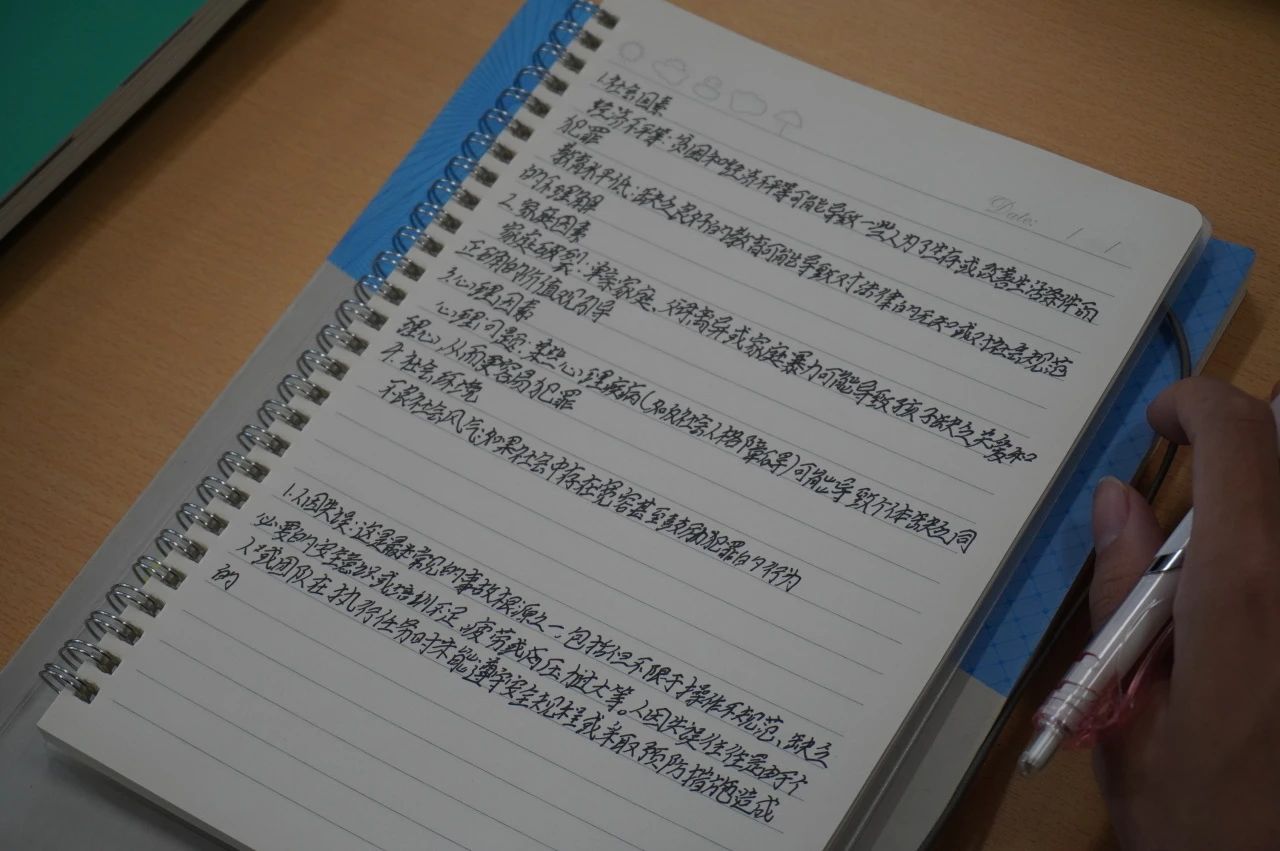 Date: / /
1.社会因素
经济不平等:贫困和经济不平等可能导致一些人为了生存或改善生活条件而
犯罪
教育水平低:缺乏良好的教育可能导致对法律的无知或对社会规范
的不理解
2.家庭因素
家庭破裂:单亲家庭、父母离异或家庭暴力可能导致孩子缺乏关爱和
正确的价值观引导
3.心理因素
心理问题:某些心理疾病(如反社会人格障碍)可能导致个体缺乏同
理心,从而更容易犯罪
4.社会环境
不良社会风气:如果社会中存在宽容甚至鼓励犯罪的行为
1.人因失误:这是最常见的事故根源之一,包括但不限于操作不规范、缺乏
必要的安全意识或培训不足、疲劳或内压力过大等。人因失误往往是由于个
人或团队在执行任务时未能遵守安全规程或采取预防措施造成
的